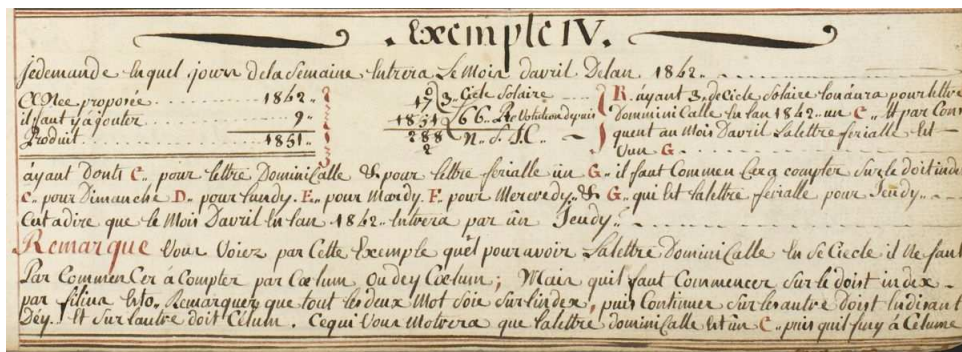 . Exemple IV.
Jedemande En quel jours dela Semaine Entrera Le Mois davril Delan 1842..
ANee proposée .......... 1842 ..
il faut y ajouter ........ 9 ..
Produit ............ 1851 ..
3.. Cicle Solaire
1851 66.. Revolution depuis
288 N.. S. J.C..
2
R. áyant 3.. de Cicle Solaire lon áura pour lettre
DominiCalle En lan 1842.. un C.. Et par Con
quent au Mois Davril La lettre ferialle Est
Un G
áyant Donts C.. pour lettre DominiCalle & pour lettre ferialle ün G.. il faut Commen Cera compter Sur le doit inde
C.. pour Dimanche D.. pour Lundy. E.. pour Mardy F.. pour Mercredy.. & G.. qui Est la lettre ferialle pour Jeudy..
Cest adire que le Mois Davril En lan 1842.. Entrera par ün Jeudy..
Remarque Vous Voiez par Cette Exemple quêl pour avoir La lettre DominiCalle En Se Ciecle il Ne faut
Par CommenCer á Compter par Cœlum Ou dey Cœlum; Mais quil faut Commencer Sur le doist index
par filius Esto. Remarquer que tout les deux Mot Soie Sur lindex, puis Continuer Sur les autre doist En disant
Dey. Et Sur lautre doit Célum. Ce qui Vous Motrera que la lettre dominiCalle Est ün C.. puis quil finy á Célume